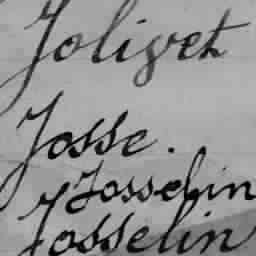 Jolivet
Josse.
Josselin
Josselin